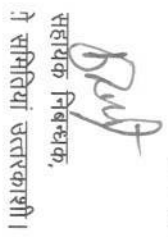 सहायक निबन्धक,
समितियां उत्तरकाशी।